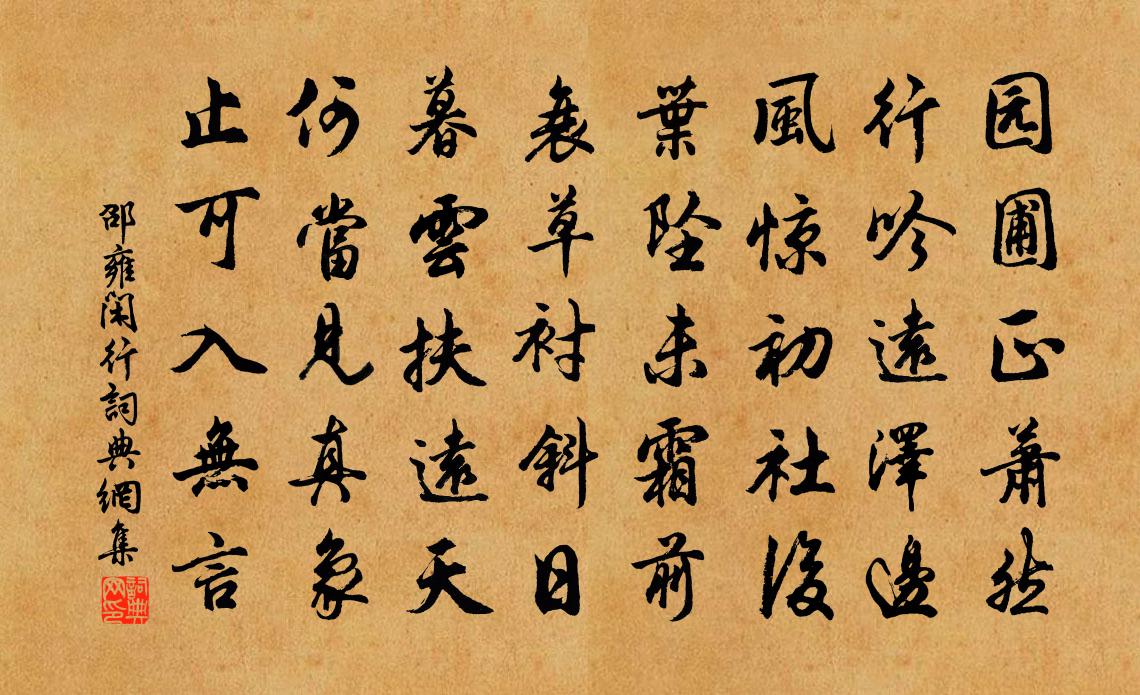 园圃正萧然
行吟遠澤邊
風惊初社後
葉墜未霜前
衰草衬斜日
暮雲扶遠天
何當見真象
止可入無言
邵雍閑行詞典網集
詞典网印